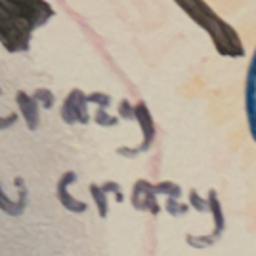 crazy
crazy